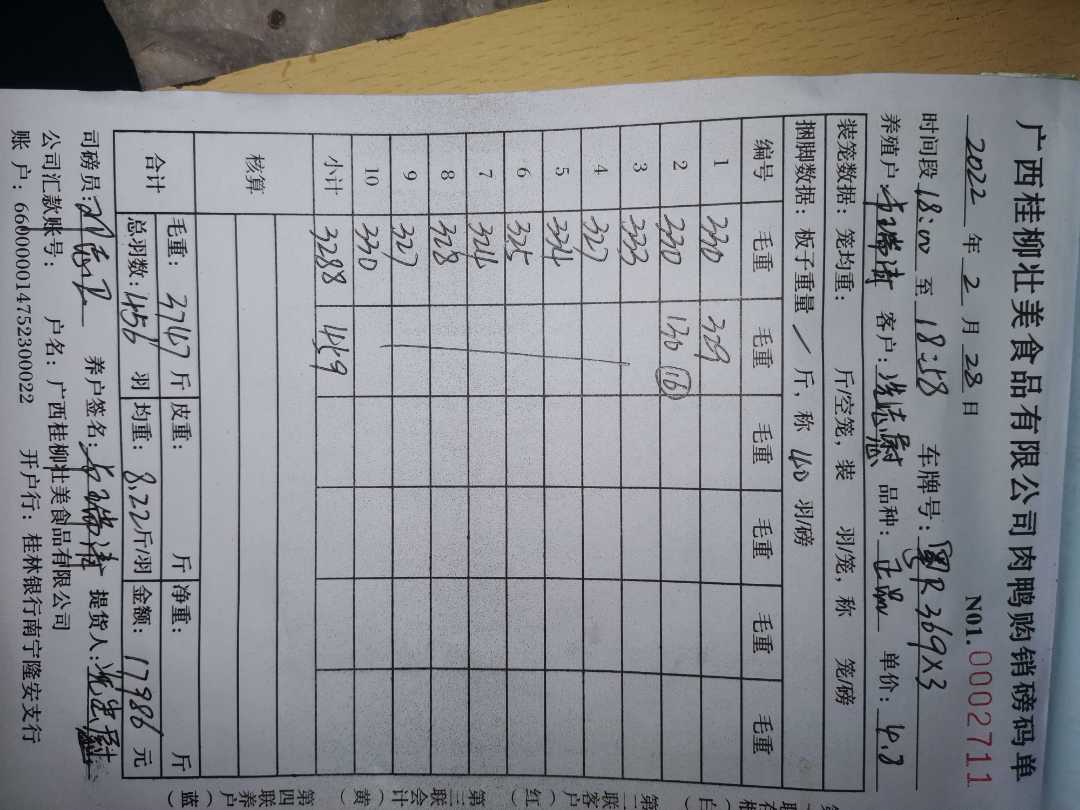 广西桂柳壮美食品有限公司肉鸭购销磅码单
2022 年 2 月 28 日 N01.0002711
时间段 18:00 至 18:58 车牌号: 粤R369X3
养殖户: 客户: 品种: 正品 单价: 4.8
装笼数据: 笼均重: 斤/空笼, 装 羽/笼, 称 笼/磅
捆脚数据: 板子重量 / 斤, 称 40 羽/磅
编号 毛重 毛重 毛重 毛重 毛重 毛重
1 330 329
2 330 130 (16)
3 333
4 327
5 334
6 325
7 324
8 328
9 327
10 330
小计 3288 459
核算
合计 毛重: 3747 斤 皮重: 斤 净重: 斤
总羽数: 456 羽 均重: 8.22 斤/羽 金额: 17986 元
司磅员: 养户签名: 提货人:
公司汇款账号: 户名: 广西桂柳壮美食品有限公司
账户: 660000014752300022 开户行: 桂林银行南宁隆安支行
第二联客户(红)
第三联会计(黄)
第四联养户(蓝)